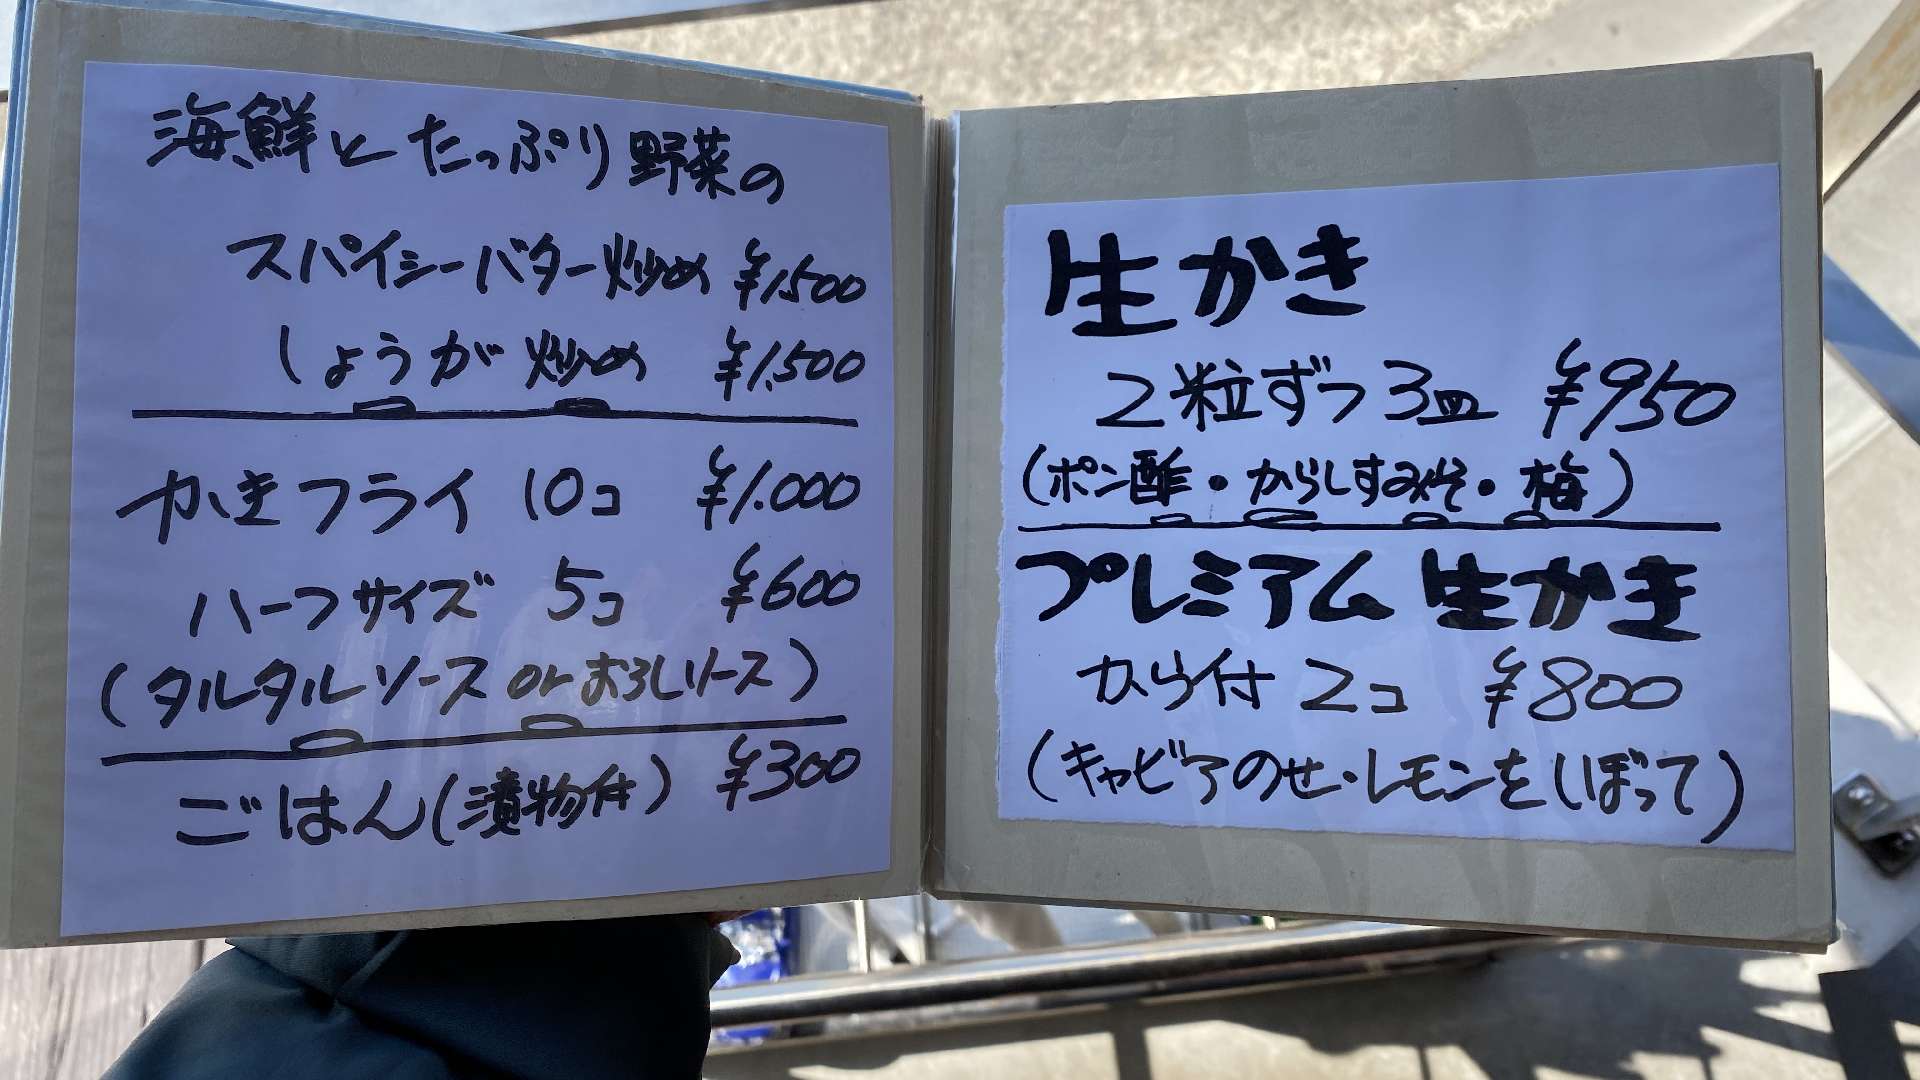 海鮮とたっぷり野菜の
スパイシーバター炒め ¥1,500
しょうが炒め ¥1,500
かきフライ 10コ ¥1.000
ハーフサイズ 5コ ¥600
(タルタルソース or おろしソース)
ごはん(漬物付) ¥300
生かき
2粒ずつ3皿 ¥950
(ポン酢・からしすみそ・梅)
プレミアム生かき
から付 2コ ¥800
(キャビアのせ・レモンをしぼって)